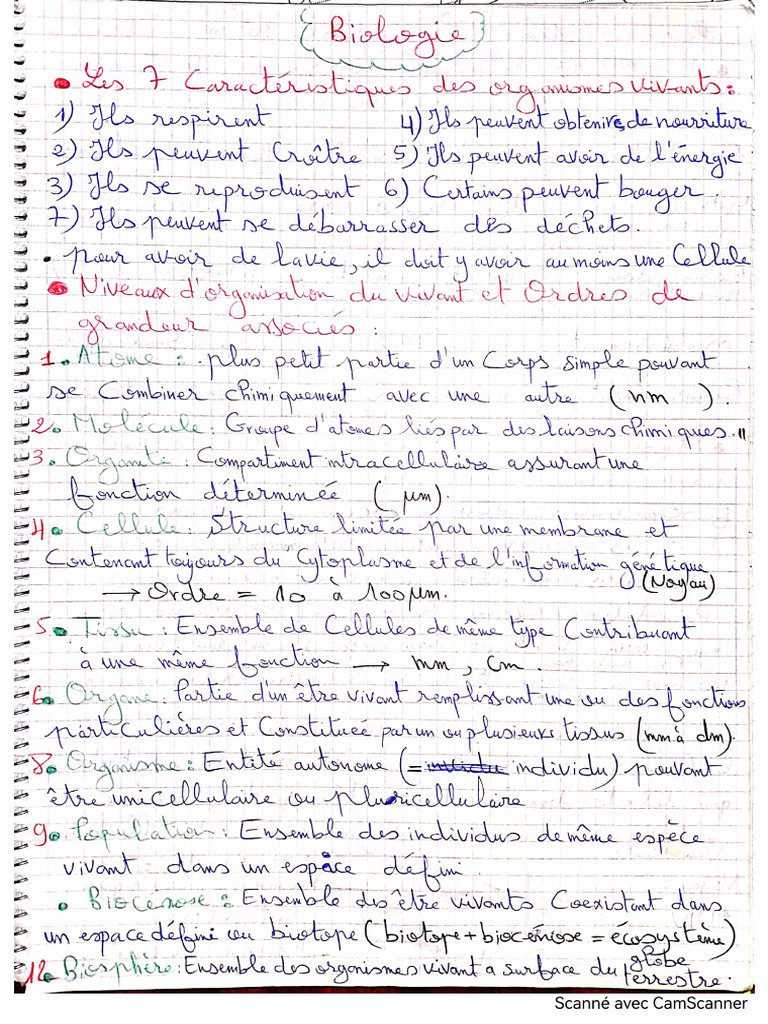 Biologie
• Les 7 Caractéristiques des organismes vivants :
1) Ils respirent 4) Ils peuvent obtenir de nourriture
2) Ils peuvent Croître 5) Ils peuvent avoir de l'énergie
3) Ils se reproduisent 6) Certains peuvent bouger.
7) Ils peuvent se débarrasser dès déchets.
• pour avoir de la vie, il doit y avoir au moins une Cellule
• Niveaux d'organisation du vivant et Ordres de
grandeur associés :
1. Atome : plus petit partie d'un Corps simple pouvant
se Combiner chimiquement avec une autre (nm).
2. Molécule : Groupe d'atomes liés par des liaisons chimiques. "
3. Organite : Compartiment intracellulaire assurant une
fonction déterminée (µm).
4. Cellule : Structure limitée par une membrane et
Contenant toujours du Cytoplasme et de l'information génétique
(Noyau)
→ Ordre = 10 à 100 µm.
5. Tissu : Ensemble de Cellules de même type Contribuant
à une même fonction → mm, cm.
6. Organe : Partie d'un être vivant remplissant une ou des fonctions
particulières et Constituée par un ou plusieurs tissus (mm à dm).
8. Organisme : Entité autonome (= individu) pouvant
être unicellulaire ou pluricellulaire
9. Population : Ensemble des individus de même espèce
vivant dans un espace défini.
• Biocénose : Ensemble des être vivants Coexistant dans
un espace défini ou biotope (biotope + biocénose = écosystème)
12. Biosphère : Ensemble des organismes vivant a surface du globe
terrestre.
Scanné avec CamScanner